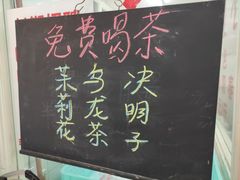 免费喝茶
茉莉花
乌龙茶
决明子